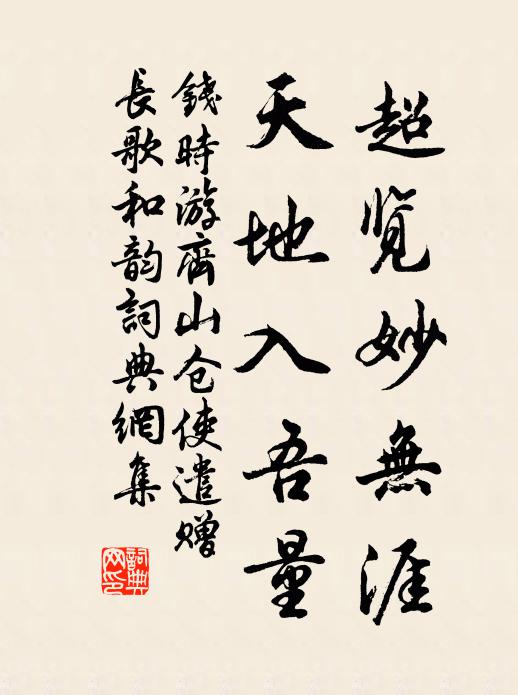 超览妙無涯
天地入吾量
錢時游齊山仓使遣赠
長歌和韵詞典網集
詞典网印